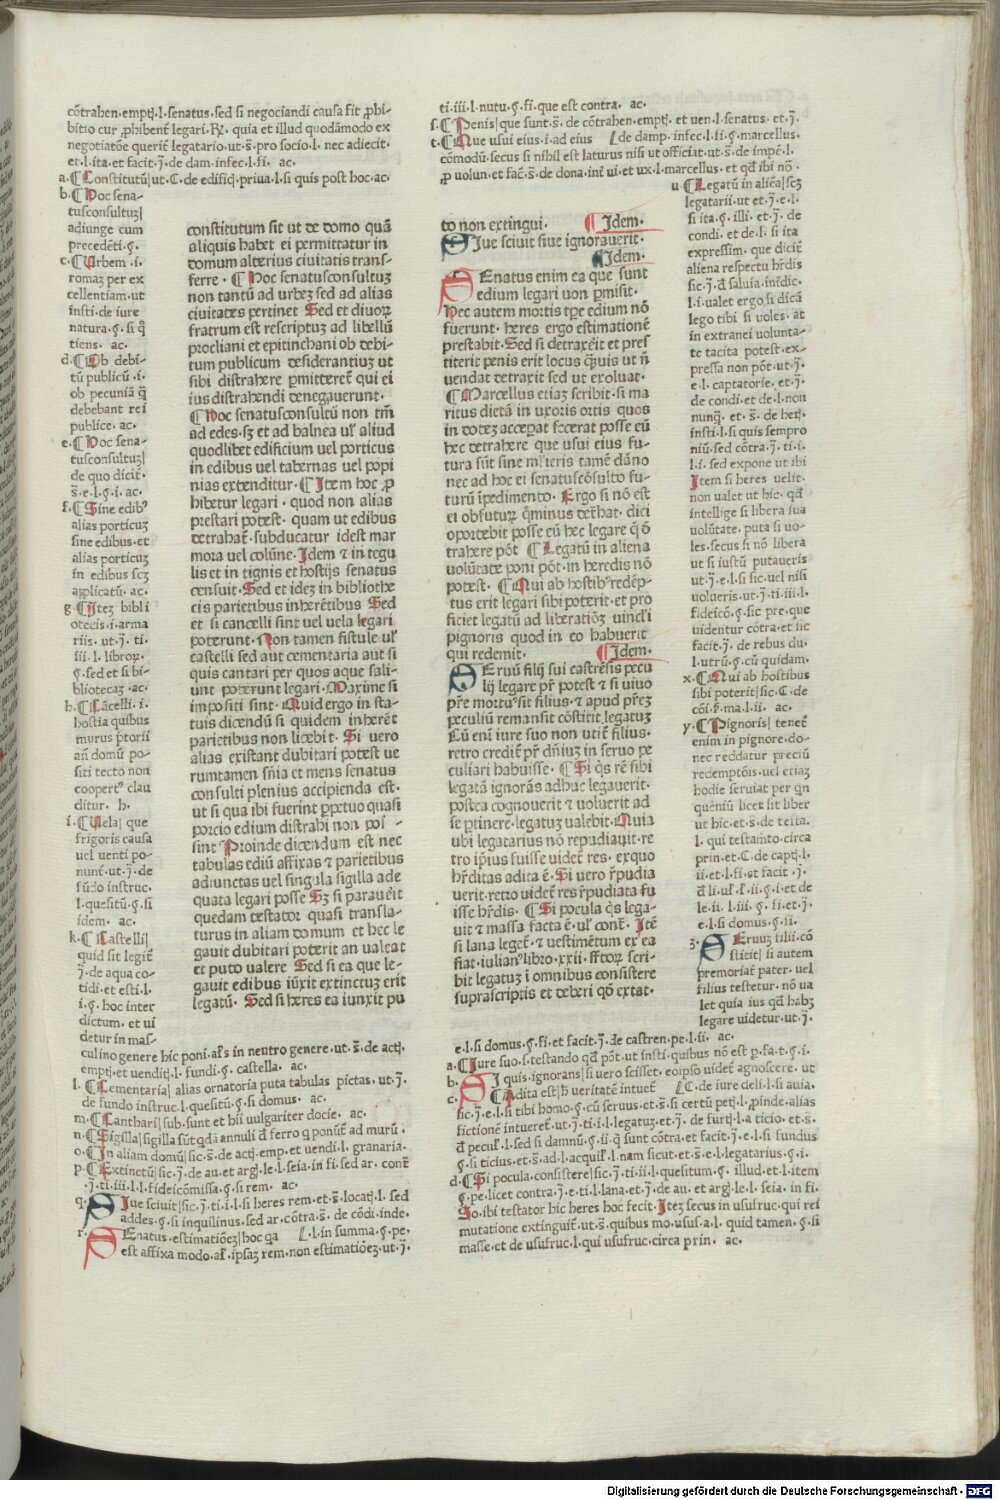 cōtrahen·emptį·l·senatus·sed si negociandi causa fit ꝓhi-
bitio cur ꝓhibent̄ legari·R̄·quia et illud quodāmodo ex
negotiatōe queriē legatario·ut·s̄·pro socio·l·nec adiecit·
et·l·ita·et facit·j̄·de dam·infec·l·fi· ac·
a·¶Constitutū|ut·C·de edific̄·priua·l·si quis post hoc·ac·
b·¶Hoc sena-
tusconsultuʒ|
adiunge cum
precedēti·ꝭ·
c·¶Urbem·i·
romaʒ per ex
cellentiam·ut
insti·de iure
natura·ꝭ·si q̄
tiens· ac·
d·¶Ob debi-
tū publicū·i·
ob pecuniā q̄
debebant rei
publice· ac·
e·¶Hoc sena-
tusconsultuʒ|
de quo dicit̄·
s̄·e·l·ꝭ·i· ac·
f·¶Sine edib⁹
alias porticuʒ
sine edibus·et
alias porticuʒ
in edibus scʒ
applicatū· ac·
g·¶Iteʒ bibli
otecis·i·arma
riis·ut·j̄·ti·
iii·l·libroꝝ·
ꝭ·sed et si bi-
bliotecaʒ·ac·
h·¶Cācelli·i·
hostia quibus
murus p̄torii
an̄ domū po-
siti tecto non
coopert⁹ clau
ditur· h·
i·¶Uela| que
frigoris causa
uel uenti po-
nunt̄·ut·j̄·de
fūdo instruc·
l·quesitū·ꝭ·si
idem· ac·
k·¶Castelli|
quid sit legit̄
j̄·de aqua co-
tidi·et esti·l·
i·ꝭ·hoc inter
dictum·et ui
detur in mas-
culino genere hic poni·al̄s in neutro genere·ut·s̄·de actį·
empti·et uenditį·l·fundi·ꝭ·castella· ac·
l·¶Cementaria| alias ornatoria puta tabulas pictas·ut·j̄·
de fundo instruc·l·quesitū·ꝭ·si domus· ac·
m·¶Canthari| sub·sunt et hii uulgariter docie· ac·
n·¶Sigilla| sigilla sūt q̄dā annuli d̄ ferro q̄ ponūt̄ ad murū·
o·¶In aliam domū| sic·s̄·de actį·emp·et uendi·l·granaria·
p·¶Extinctū| sic·j̄·de au·et arḡ·le·l·seia·in fi·sed ar·cont̄
·j̄·ti·iii·l·l·fideicōmissa·ꝭ·si rem· ac·
q·SIue sciuit| sic·j̄·ti·i·l·si heres rem·et·s̄·locatį·l·sed
addes·ꝭ·si inquilinus·sed ar·cōtra·s̄·de cōdi·inde·
r·SEnatus·estimatiōeʒ| hoc q̄a [l·in summa·ꝭ·pe·
est affixa modo·al̄·ipsaʒ rem·non estimatiōeʒ·ut·j̄·
constitutum sit ut de domo quā
aliquis habet ei permittatur in
domum alterius ciuitatis trans-
ferre· ¶Hoc senatusconsultuʒ
non tantū ad urbeʒ sed ad alias
ciuitates pertinet Sed et diuoꝝ
fratrum est rescriptuʒ ad libellū
procliani et epitinchani ob debi-
tum publicum desiderantiuʒ ut
sibi distrahere ꝑmitteret̄ qui ei
ius distrahendi denegauerunt·
¶Hoc senatusconsultū non tm̄
ad edes·sʒ et ad balnea ul̄ aliud
quodlibet edificium uel porticus
in edibus uel tabernas uel popi
nias extenditur·¶Item hoc ꝓ
hibetur legari·quod non alias
prestari potest·quam ut edibus
detrahat̄·subducatur idest mar
mora uel colūne·Idem ⁊ in tegu
lis et in tignis et hostijs senatus
censuit·Sed et ideʒ in bibliothe
cis parietibus inherētibus Sed
et si cancelli sint uel uela legari
poterunt·Non tamen fistule ul̄
castelli sed aut cementaria aut si
quis cantari per quos aque sali-
unt poterunt legari·Maxime si
impositi sint·Quid ergo in sta-
tuis dicendū si quidem inherēt
parietibus non licebit·Si uero
alias existant dubitari potest ue
rumtamen sn̄ia et mens senatus
consulti plenius accipienda est·
ut si qua ibi fuerint ꝑpetuo quasi
porcio edium distrahi non pos-
sint Proinde dicendum est nec
tabulas ediū affixas ⁊ parietibus
adiunctas uel singula sigilla ade
quata legari posse Sʒ si parauēit
quedam testator quasi transla-
turus in aliam domum et hec le
gauit dubitari poterit an ualeat
et puto ualere Sed si ea que le-
gauit edibus iūxit extinctuʒ erit
legatū·Sed si heres ea iunxit pu
ti·iii·l·nutu·ꝭ·fi·que est contra· ac·
s·¶Penis| que sunt·s̄·de cōtrahen·emptį·et uen·l·senatus·et·j̄·
t·¶Que usui eius·i·ad eius [de damp·infec·l·fi·ꝭ·marcellus·
cōmodū·secus si nihil est laturus nisi ut officiat·ut·s̄·de impē·l·
ꝓ uolun·et fac̄·s̄·de dona·int̄ ui·et ux·l·marcellus·et qd̄ ibi nō·
to non extingui· ¶Idem·
SIue sciuit siue ignorauerit·
¶Idem·
SEnatus enim ea que sunt
edium legari uon ꝑmisit·
Hec autem mortis tꝑe edium nō
fuerunt·heres ergo estimationē
prestabit·Sed si detraxeīt et pres
titerit penis erit locus q̄uis ut n̄
uendat detraxit sed ut exoluat·
¶Marcellus etiaʒ scribit·si ma
ritus dietā in uxoris ortis quos
in doteʒ acceꝑat fecerat posse eū
hec detrahere que usui eius fu-
tura sūt sine ml̄ieris tamē dāno
nec ad hoc ei senatuscōsulto fu-
turū īpedimento·Ergo si nō est
ei obfuturꝝ q̄minus det̄hat·dici
oportebit posse eū hec legare q̄ ō
trahere pōt ¶Legatū in aliena
uolūtate poni pōt·in heredis nō
potest·¶Qui ab hostib⁹ redēp-
tus erit legari sibi poterit·et pro
ficiet legatū ad liberatiōʒ uincl̄i
pignoris quod in eo habuerit
qui redemit· ¶Idem·
SEruū filij sui castrēsis pecu
lij legare pr̄ potest ⁊ si uiuo
pr̄e mortu⁹ sit filius·⁊ apud pr̄eʒ
peculiū remansit cōstitit legatuʒ
Cū enī iure suo non utit̄ filius·
retro credit̄ pr̄ dn̄iuʒ in seruo pe
culiari habuisse·¶Si q̄s rē sibi
legatā ignorās adhuc legauerit·
postea cognouerit ⁊ uoluerit ad
se ꝑtinere·legatuʒ ualebit·Quia
ubi legatarius nō repudiauit·re
tro ip̄ius fuisse uidet̄ res·exquo
hr̄ditas adita ē·Si uero r̄pudia
uerit·retro uidet̄ res r̄pudiata fu
isse hr̄dis·¶Si pocula q̄s lega-
uit ⁊ massa facta ē·ul̄ cont̄·Itē
si lana leget̄·⁊ uestimētum ex ea
fiat·iulian⁹ libro·xxii·ff̄toꝝ scri-
bit legatuʒ i omnibus consistere
suprascriptis et deberi qd̄ extat·
u·¶Legatū in aliēa| scʒ
legatarii·ut et·j̄·e·l·
si ita·ꝭ·illi·et·j̄·de
condi·et de·l·si ita
expressim·que dicit̄
aliena respectu hr̄dis
sic·j̄·d̄ saluia·int̄dic·
l·i·ualet ergo si dicā
lego tibi si uoles·at
in extranei uolunta-
te tacita potest·ex-
pressa non pōt·ut·j̄·
e·l·captatorie·et·j̄·
de condi·et de·l·non
nunq̄·et·s̄·de her̄·
insti·l·si quis sempro
niū·sed cōtra·j̄·ti·i·
l·i·sed expone ut ibi
Item si heres uelit·
non ualet ut hic·qd̄
intellige si libera sua
uolūtate·puta si uo-
les·secus si nō libera
ut si iustū putaueris
ut·j̄·e·l·si sic·uel nisi
uolueris·ut·j̄·ti·iii·l·
fideicō·ꝭ·sic pre·que
uidentur cōtra·et sic
facit·j̄·de rebus du·
l·utrū·ꝭ·cū quidam·
x·¶Qui ab hostibus
sibi poterit| sic·C·de
cōi·p̄·ma·l·ii· ac·
y·¶Pignoris| tenet̄
enim in pignore·do-
nec reddatur preciū
redemptōis·uel etiaʒ
hodie seruiat per qn
queniū licet sit liber
ut hic·et·s̄·de testa·
l·qui testam̄to·circa
prin·et·C·de captį·l·
ii·et·l·fi·sʒ facit·j̄·
d̄ li·ul̄·f·ii·ꝭ·i·et de
le·ii·l·iii·ꝭ·fi·et·j̄·
e·l·si domus·ꝭ·ii·
z·SEruuʒ filii·cō
stitit| si autem
premoriat̄ pater·uel
filius testetur·nō ua
let quia ius qd̄ habʒ
legare uidetur·ut·j̄·
e·l·si domus·ꝭ·fi·et facit·j̄·de castren·pe·l·ii· ac·
a·¶Iure suo·s·testando qd̄ pōt·ut insti·quibus nō est p̄·fa·t·ꝭ·i·
b·SI quis·ignorans| si uero scisset·eoipso uidet̄ agnoscere·ut
c·¶Adita est| h̄ ueritatē intuet̄ [C·de iure deli·l·si auia·
sic·j̄·e·l·si tibi homo·ꝭ·cū seruus·et·s̄·si certū petį·l·ꝓinde·alias
fictionē intueret̄·ut·j̄·ti·i·l·legatuʒ·et·j̄·de furtį·l·a ticio·et·s̄·
d̄ pecul̄·l·sed si damnū·ꝭ·ii·q̄ sunt cōtra·et facit·j̄·e·l·si fundus
ꝭ·si ticius·et·s̄·ad·l·acquil̄·l·nam sicut·et·s̄·e·l·legatarius·ꝭ·i·
d·¶Si pocula·consistere| sic·j̄·ti·ii·l·quesitum·ꝭ·illud·et·l·item
ꝭ·pe·licet contra·j̄·e·ti·l·lana·et·j̄·de au·et arḡ·le·l·seia·in fi·
So·ibi testator hic heres hoc fecit·Iteʒ secus in usufruc·qui rei
mutatione extinguit̄·ut·s̄·quibus mo·usus·a·l·quid tamea·ꝭ·si
masse·et de usufruc·l·qui usufruc·circa prin· ac·
Digitalisierung gefördert durch die Deutsche Forschungsgemeinschaft · DFG